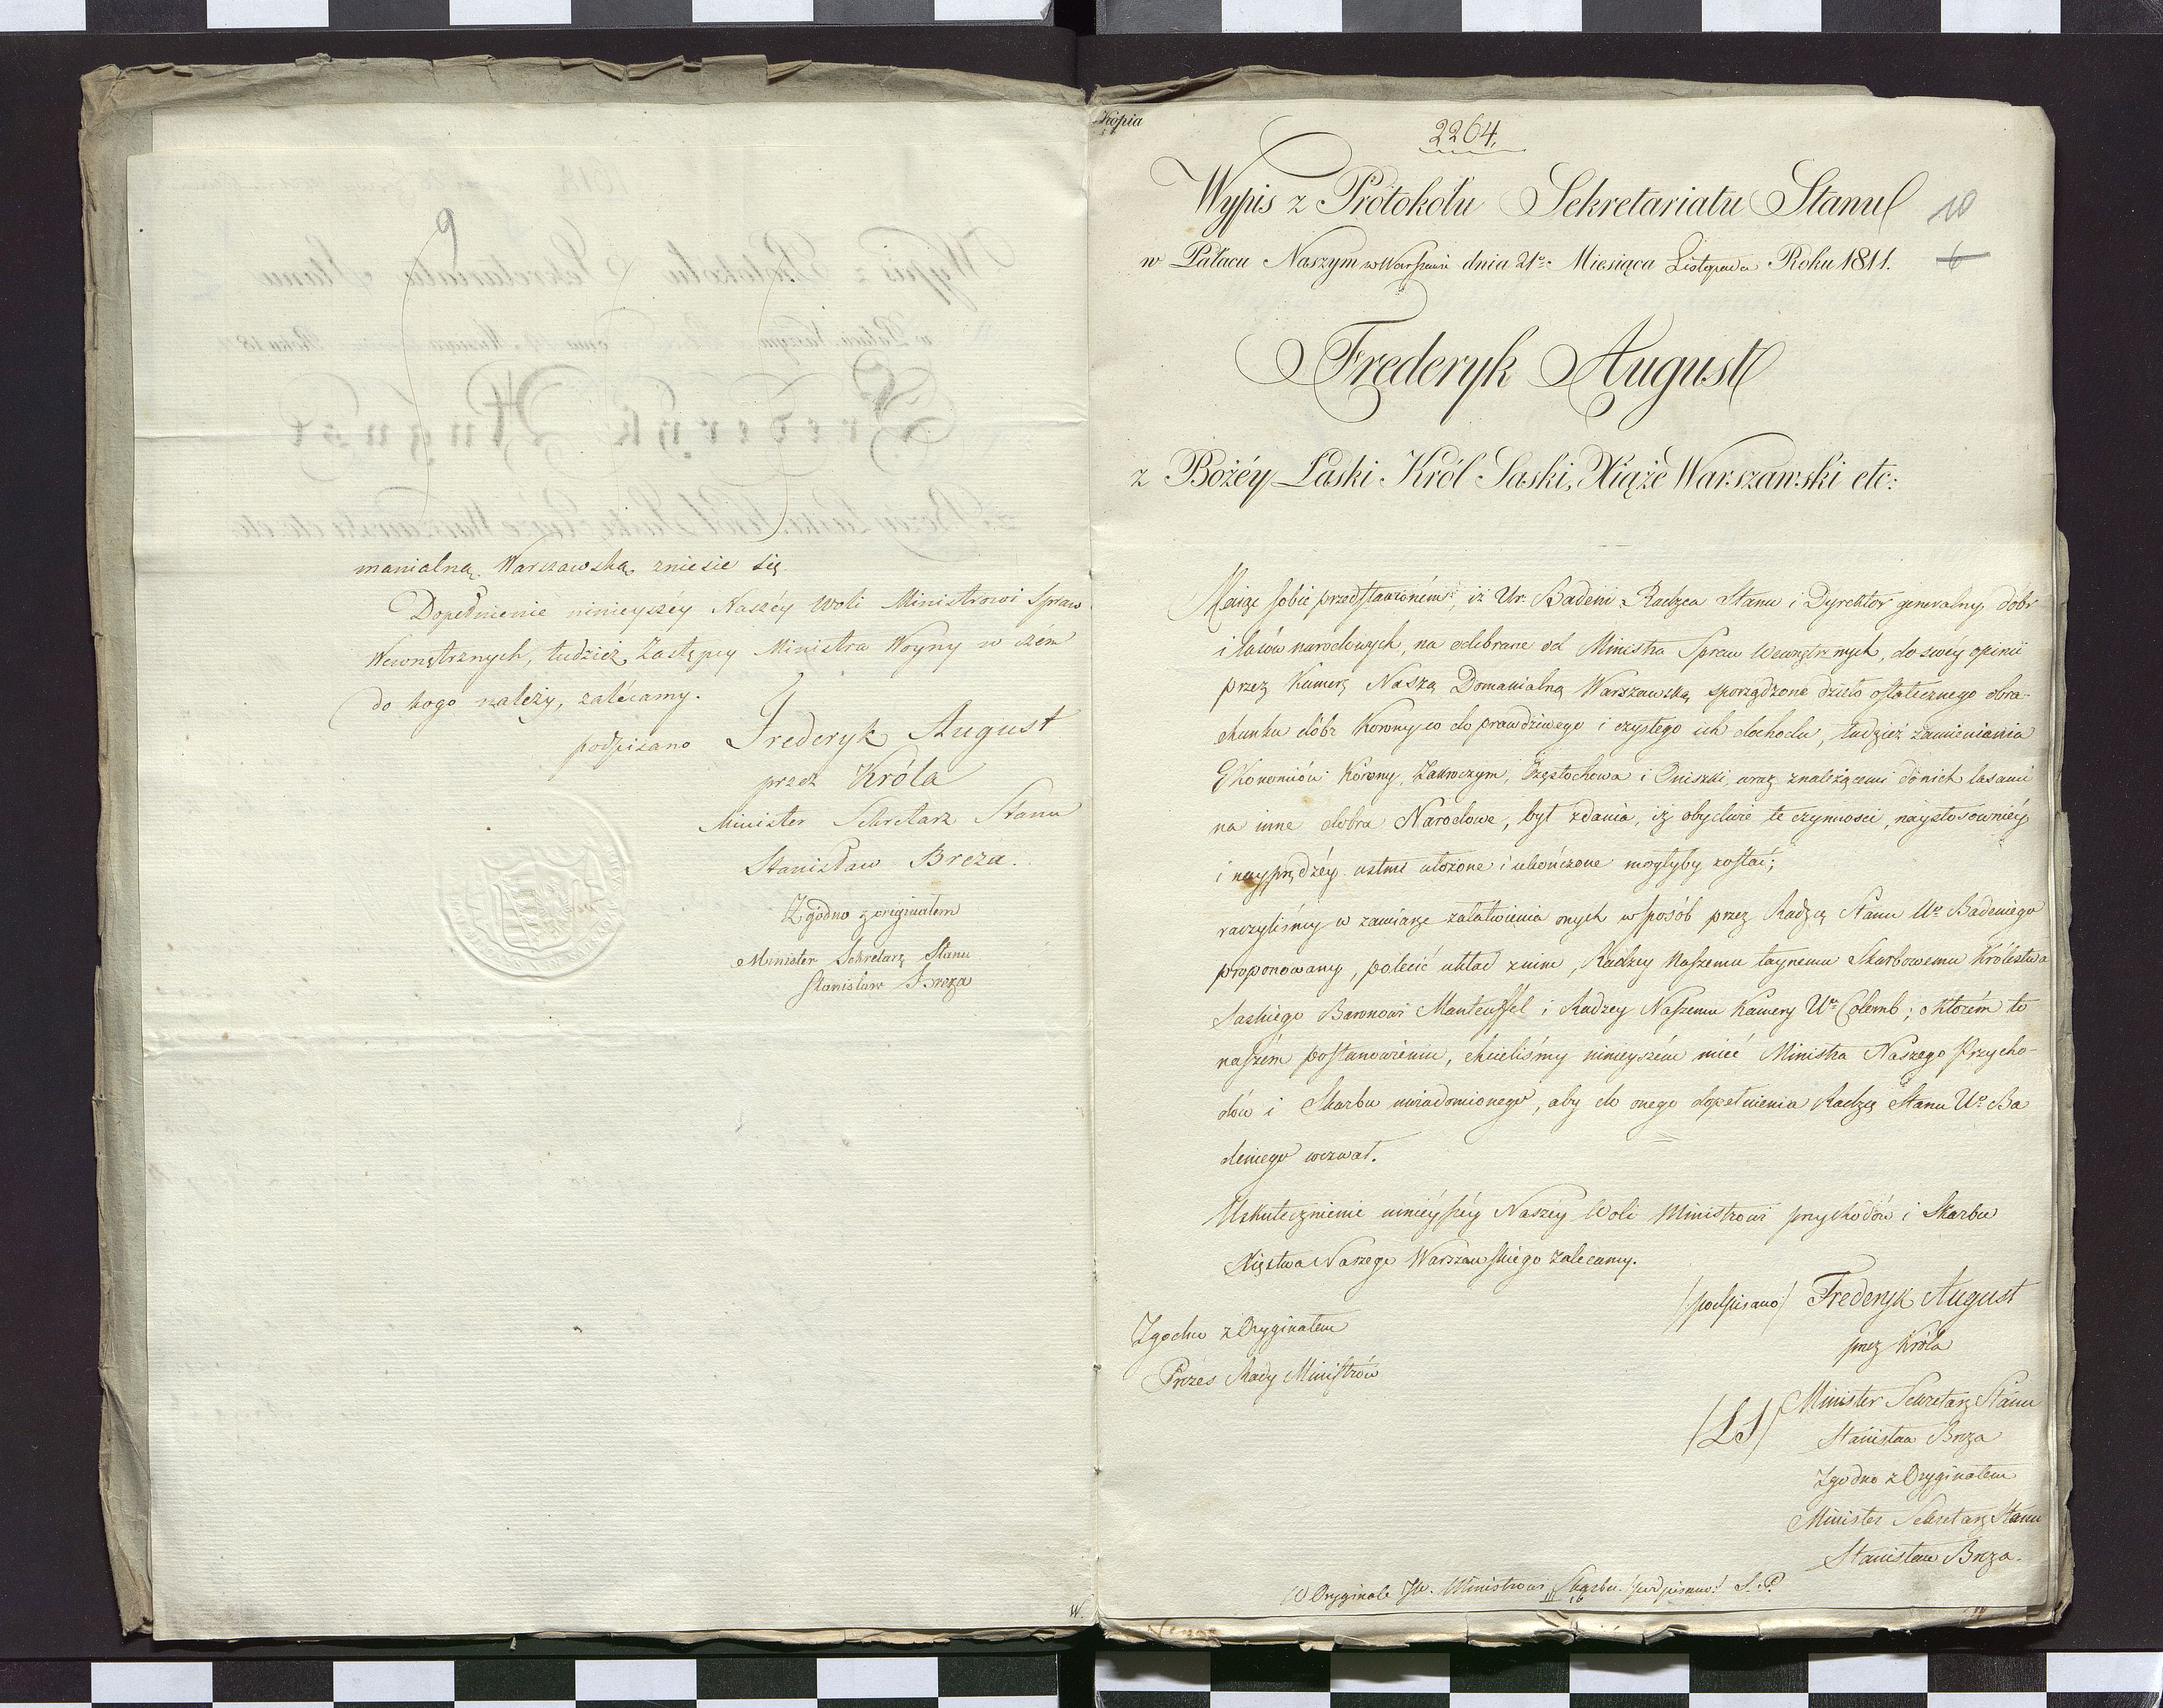 9
manialną Warszawską zniesie się.
Dopełnienie ninieyszéy Naszéy Woli Ministrowi Spraw
Wewnętrznych, tudzież Zastępcy Ministra Woyny w czém
do kogo należy, zalécamy.
podpisano Frederyk August
przez Króla
Minister Sekretarz Stanu
Stanisław Breza.
Zgodno z oryginałem
Minister Sekretarz Stanu
Stanisław Breza
W.
Kopia
2264.
Wypis z Protokółu Sekretariatu Stanu
10
w Pałacu Naszym w Warszawie dnia 21o Miesiąca Listopada Roku 1811.
6
Frederyk August
z Bożéy Łaski Król Saski, Xiąże Warszawski etc:
Maiąc sobie przedstawioném, iż Ur. Badeni Radzca Stanu i Dyrektor generalny dóbr
i lasów narodowych, na odebrane od Ministra Spraw Wewnętrznych, do swéy opinii
przez Kamerę Naszą Domanialną Warszawską sporządzone dzieło ostatecznego obra-
chunku dóbr Korony co do prawdziwego i czystego ich dochodu, tudzież zamieniania
Ekonomiów Korony, Zakroczym, Częstochowa i Oniszki, wraz z należącemi do nich lasami
na inne dobra Narodowe, był zdania, iż obydwie te czynności, naystosowniéy
i nayprędzéy ustnie ułożone i ukończone mogłyby zostać;
raczyliśmy w zamiarze załatwienia onych w sposób przez Radzcę Stanu Uo Badeniego
proponowany, polecić układ z nim, Radzcy Naszemu taynemu Skarbowemu Królestwa
Saskiego Baronowi Manteuffel i Radzcy Naszemu Kamery Uu Colomb; o którém to
naszém postanowieniu, chcieliśmy ninieyszém mieć Ministra Naszego Przycho-
dów i Skarbu uwiadomionego, aby do onego dopełnienia Radzcę Stanu Uo Ba
deniego wezwał.
Uskutecznienie ninieyszéy Naszéy Woli Ministrowi przychodów i Skarbu
Xięstwa Naszego Warszawskiego zalecamy.
/podpisano/ Frederyk August
przez Króla
Zgodno z Oryginałem
Prezes Rady Ministrów
/LS/ Minister Sekretarz Stanu
Stanisław Breza
Zgodno z Oryginałem
Minister Sekretarz Stanu
Stanisław Breza.
W Oryginale JW. Ministrowi Skarbu /podpisano/ S. P.